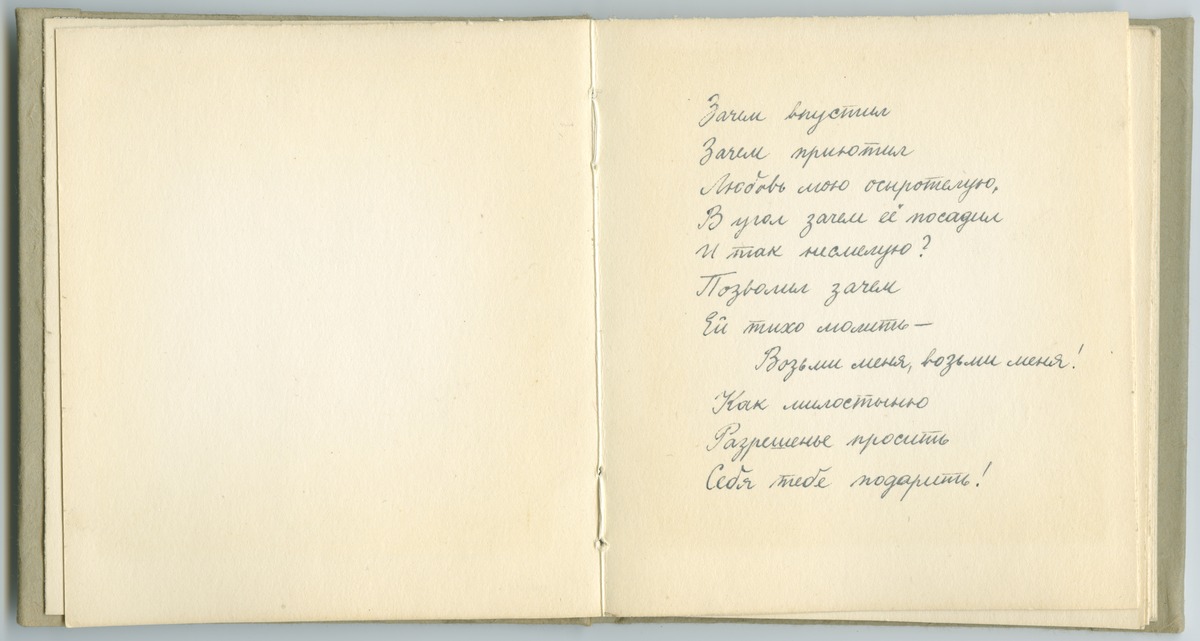 Зачем впустил
Зачем приютил
Любовь мою осиротелую,
В угол зачем её посадил
И так несмелую?
Позволил зачем
Ей тихо молить —
Возьми меня, возьми меня!
Как милостыню
Разрешенье просить
Себя тебе подарить!